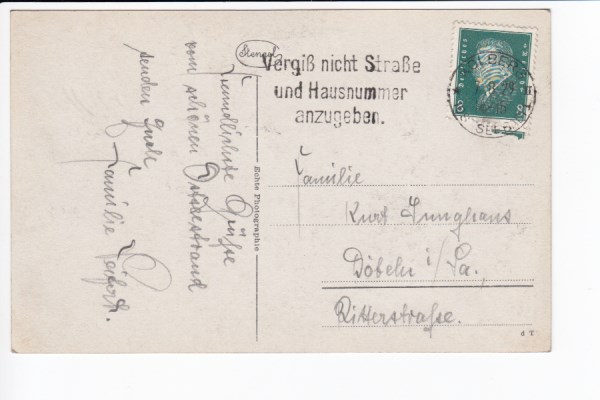 Stengel
Vergiß nicht Straße
und Hausnummer
anzugeben.
Freundlichste Grüße
vom schönen
senden Euch
Familie
Echte Photographie
Familie
Kurt Junghans
Döbeln i/Sa.
Ritterstraße.
d T
8
8